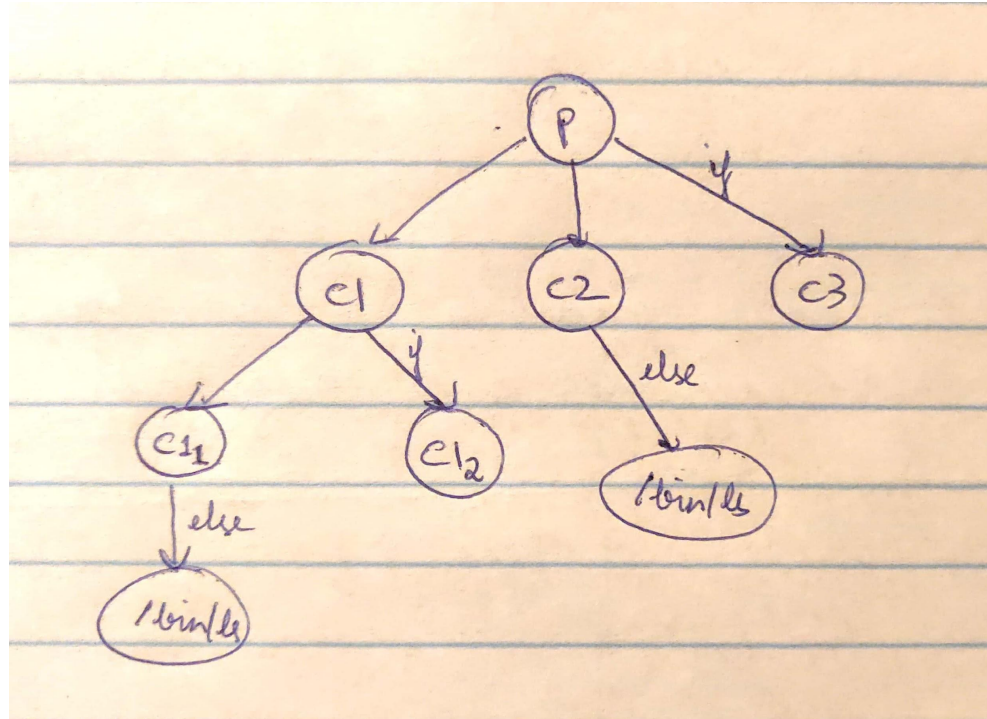 P
if
C1 C2 C3
if else
C11 C12 /bin/ls
else
/bin/ls